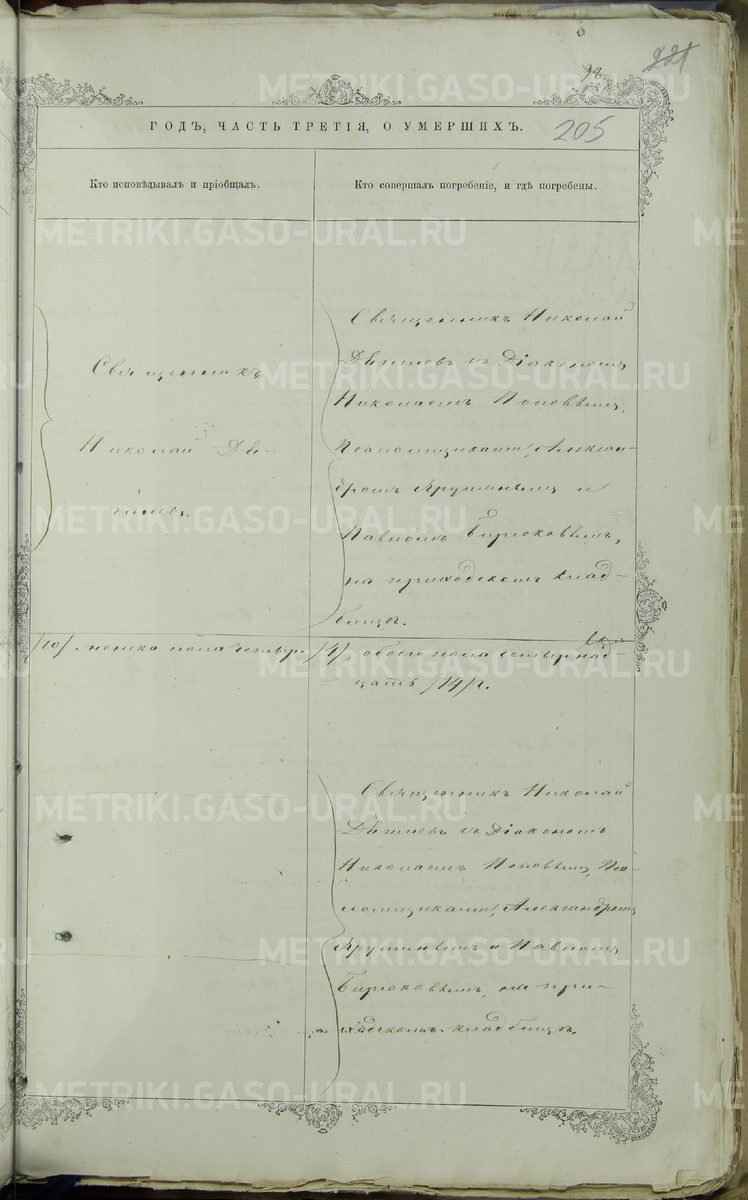 98.
221
ГОДЪ, ЧАСТЬ ТРЕТІЯ, О УМЕРШИХЪ.
205
Кто исповѣдывалъ и пріобщалъ.
Кто совершалъ погребеніе, и гдѣ погребены.
Священникъ
Николай
Священникъ Николай
съ Діакономъ
Николаемъ Поповымъ,
Псаломщиками, Алексан-
дромъ и
Павломъ Бирюковымъ,
на приходскомъ клад-
бищѣ.
/10/ женска пола четыре /4/, обоего пола четырнад-
цать /14/.
Священникъ Николай
съ Діакономъ
Николаемъ Поповымъ, Пса-
ломщиками, Александромъ
и Павломъ
Бирюковымъ, на при-
ходскомъ кладбищѣ.
METRIKI.GASO-URAL.RU